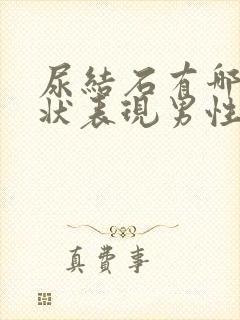 尿結石有哪
狀表現男性
真費事